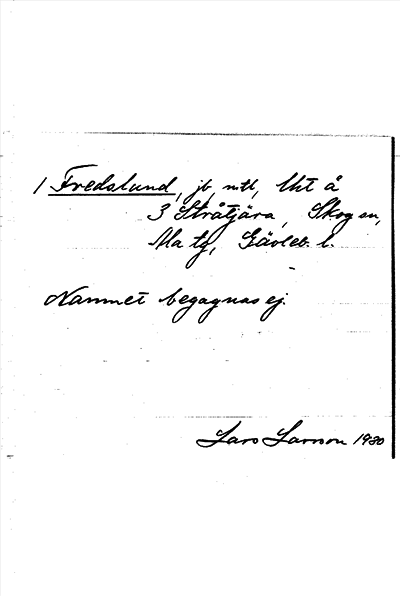 1 Fredslund, jb, ntl, lht å
3 Stråtjära, Skog sn,
Ma tg, Gävleb. l.
Namnet begagnas ej.
Lars Larsson 1930